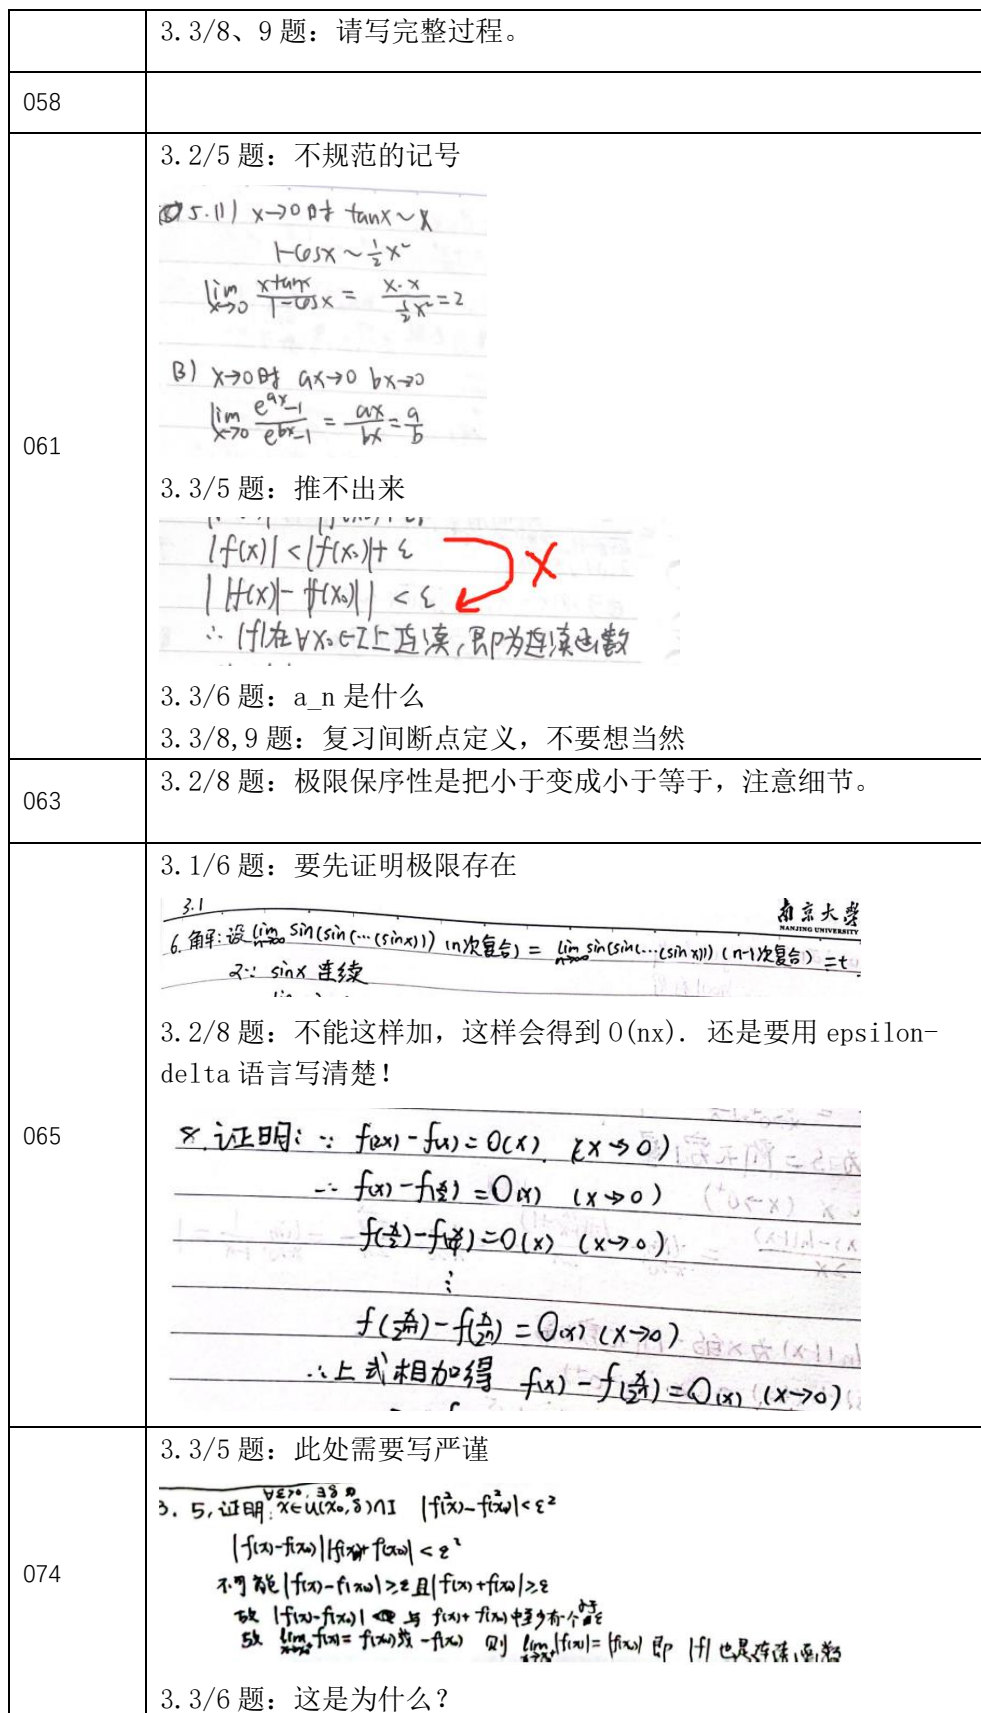 3.3/8、9题：请写完整过程。
058
3.2/5题：不规范的记号
5.(1) x→0时 tanx~x
1-cosx~½x²
lim x→0 xtanx/1-cosx = x·x/½x² = 2
(3) x→0时 ax→0 bx→0
lim x→0 e^ax-1/e^bx-1 = ax/bx = a/b
061
3.3/5题：推不出来
|f(x)|<|f(x₀)|+ε
||f(x)|-|f(x₀)||<ε
∴|f|在∀x₀∈I上连续，即为连续函数
3.3/6题：a_n是什么
3.3/8,9题：复习间断点定义，不要想当然
063
3.2/8题：极限保序性是把小于变成小于等于，注意细节。
3.1/6题：要先证明极限存在
3.1
南京大学
NANJING UNIVERSITY
6.解:设 lim n→∞ sin(sin(…(sinx))) (n次复合) = lim n→∞ sin(sin(…(sinx))) (n-1次复合) = t
又∵ sinx 连续
3.2/8题：不能这样加，这样会得到O(nx). 还是要用epsilon-
delta语言写清楚！
065
8.证明: ∵ f(2x)-f(x)=O(x) (x→0)
∴ f(x)-f(x/2)=O(x) (x→0)
f(x/2)-f(x/4)=O(x) (x→0)
⋮
f(x/2ⁿ⁻¹)-f(x/2ⁿ)=O(x) (x→0)
∴上式相加得 f(x)-f(x/2ⁿ)=O(x) (x→0)
3.3/5题：此处需要写严谨
∀ε>0, ∃δ
3. 5,证明: x∈U(x₀,δ)∩I |f²(x)-f²(x₀)|<ε²
|f(x)-f(x₀)||f(x)+f(x₀)|<ε²
074
不可能|f(x)-f(x₀)|≥ε且|f(x)+f(x₀)|≥ε
故 |f(x)-f(x₀)| 与 f(x)+f(x₀)中至少有一个小于ε
故 lim x→x₀ f(x)=f(x₀)或-f(x₀) 则 lim x→x₀ |f(x)|=|f(x₀)| 即 |f| 也是连续函数
3.3/6题：这是为什么？